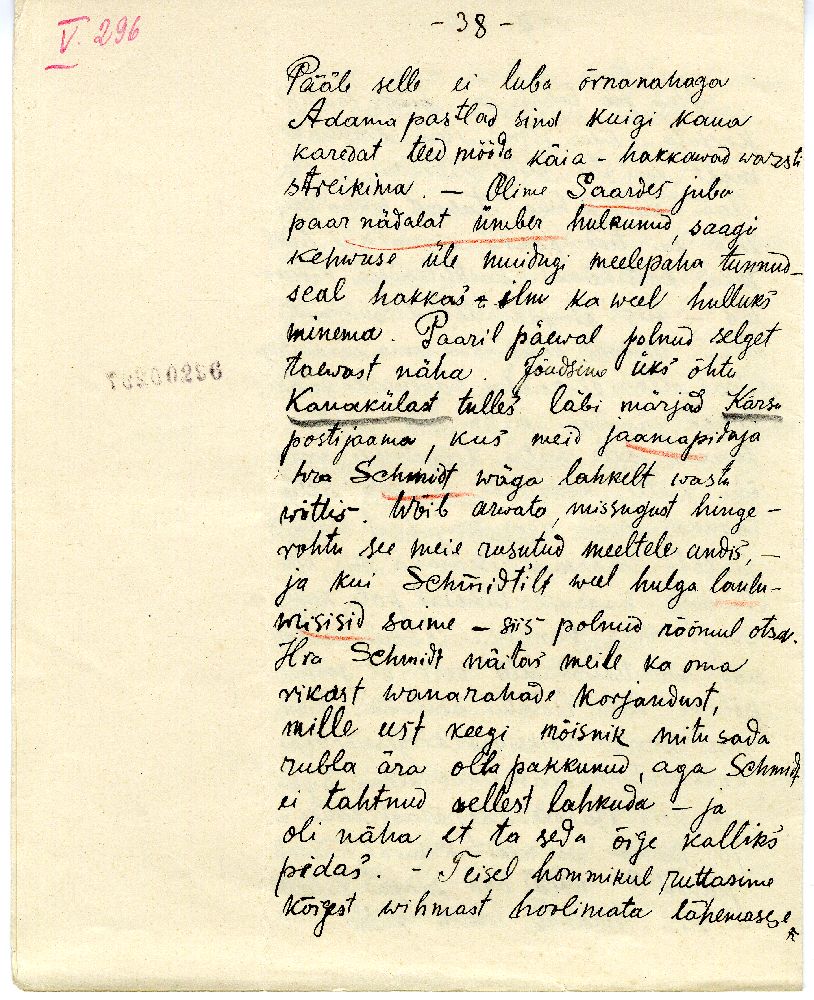 V. 296
- 38 -
Pääle selle ei luba õrnanahaga
Adama pastlad sind kuigi kaua
karedat teed mööda käia - hakkawad warsti
streikima. — Olime Saardes juba
paar nädalat ümber hulkunud, saagi
kehwuse üle muidugi meelepaha tunnud —
seal hakkas ilm ka weel hulluks
minema. Paaril päewal polnud selget
taewast näha. Jõudsime üks õhtu
Kanakülast tulles läbi märjad Kärsu
postijaama, kus meid jaamapidaja
hra Schmidt wäga lahkelt wastu
wõttis. Wõib arwata, missugust hinge-
rohtu see meie rusutud meeltele andis, —
ja kui Schmidtilt weel hulga laulu-
wiisisid saime — siis polnud rõõmul otsa.
Hra Schmidt näitas meile ka oma
rikast wanarahade korjandust,
mille eest keegi mõisnik mitu sada
rubla ära olla pakkunud, aga Schmidt
ei tahtnud sellest lahkuda — ja
oli näha, et ta seda õige kalliks
pidas. - Teisel hommikul ruttasime
kõigest wihmast hoolimata lähemasse